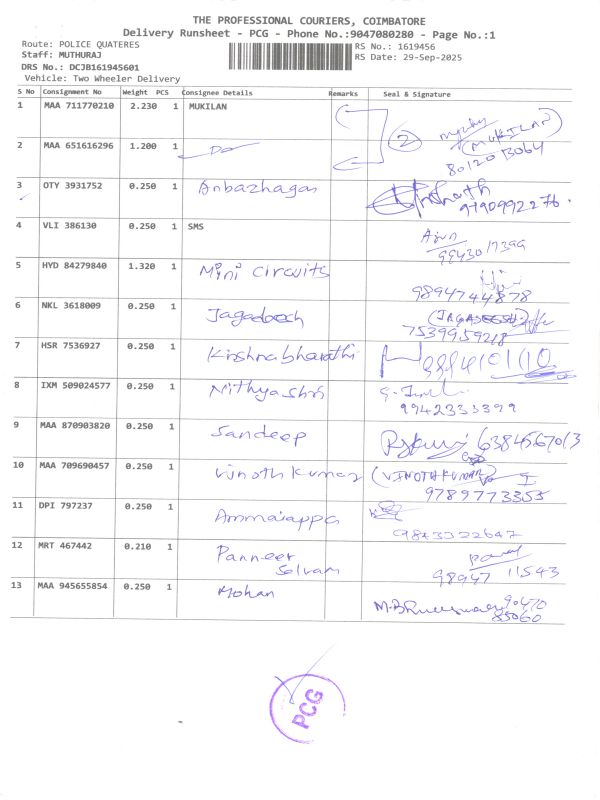 THE PROFESSIONAL COURIERS, COIMBATORE
Delivery Runsheet - PCG - Phone No.:9047080280 - Page No.:1
Route: POLICE QUATERES
RS No.: 1619456
Staff: MUTHURAJ
RS Date: 29-Sep-2025
DRS No.: DCJB161945601
Vehicle: Two Wheeler Delivery
S No Consignment No Weight PCS Consignee Details Remarks Seal & Signature
1 MAA 711770210 2.230 1 MUKILAN
2 (MUKILAN)
80120 13064
2 MAA 651616296 1.200 1 Do
3 OTY 3931752 0.250 1 Anbazhagan
9790992276
4 VLI 386130 0.250 1 SMS
Arun
9943017399
5 HYD 84279840 1.320 1 Mini Circuits
9894744878
6 NKL 3618009 0.250 1
7539959218
7 HSR 7536927 0.250 1 Krishnabharathi
8 IXM 509024577 0.250 1 Nithyashri
9942333399
9 MAA 870903820 0.250 1 Sandeep
6384567013
10 MAA 709690457 0.250 1 Vinoth kumar (VINOTHKUMAR)
9789773355
11 DPI 797237 0.250 1 Ammaiappa
9843322647
12 MRT 467442 0.210 1 Panneer
Selvam
98947 11543
13 MAA 945655854 0.250 1 Mohan
90470
85060
PCG